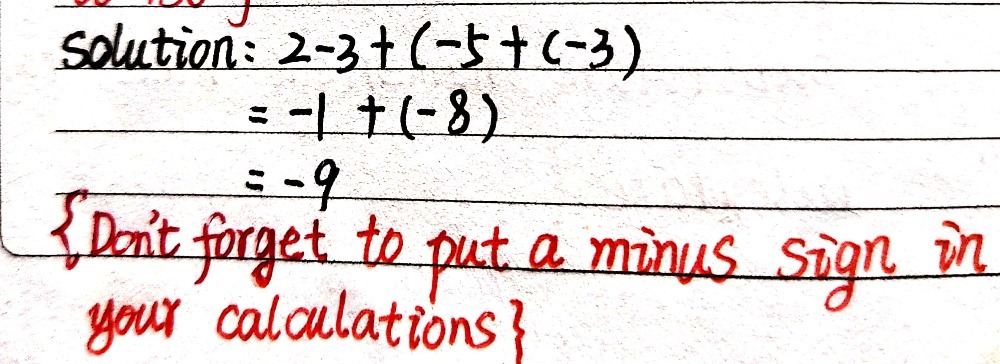 Solution: 2-3+(-5+(-3)
= -1 +(-8)
= -9
{Don't forget to put a minus sign in
your calculations}